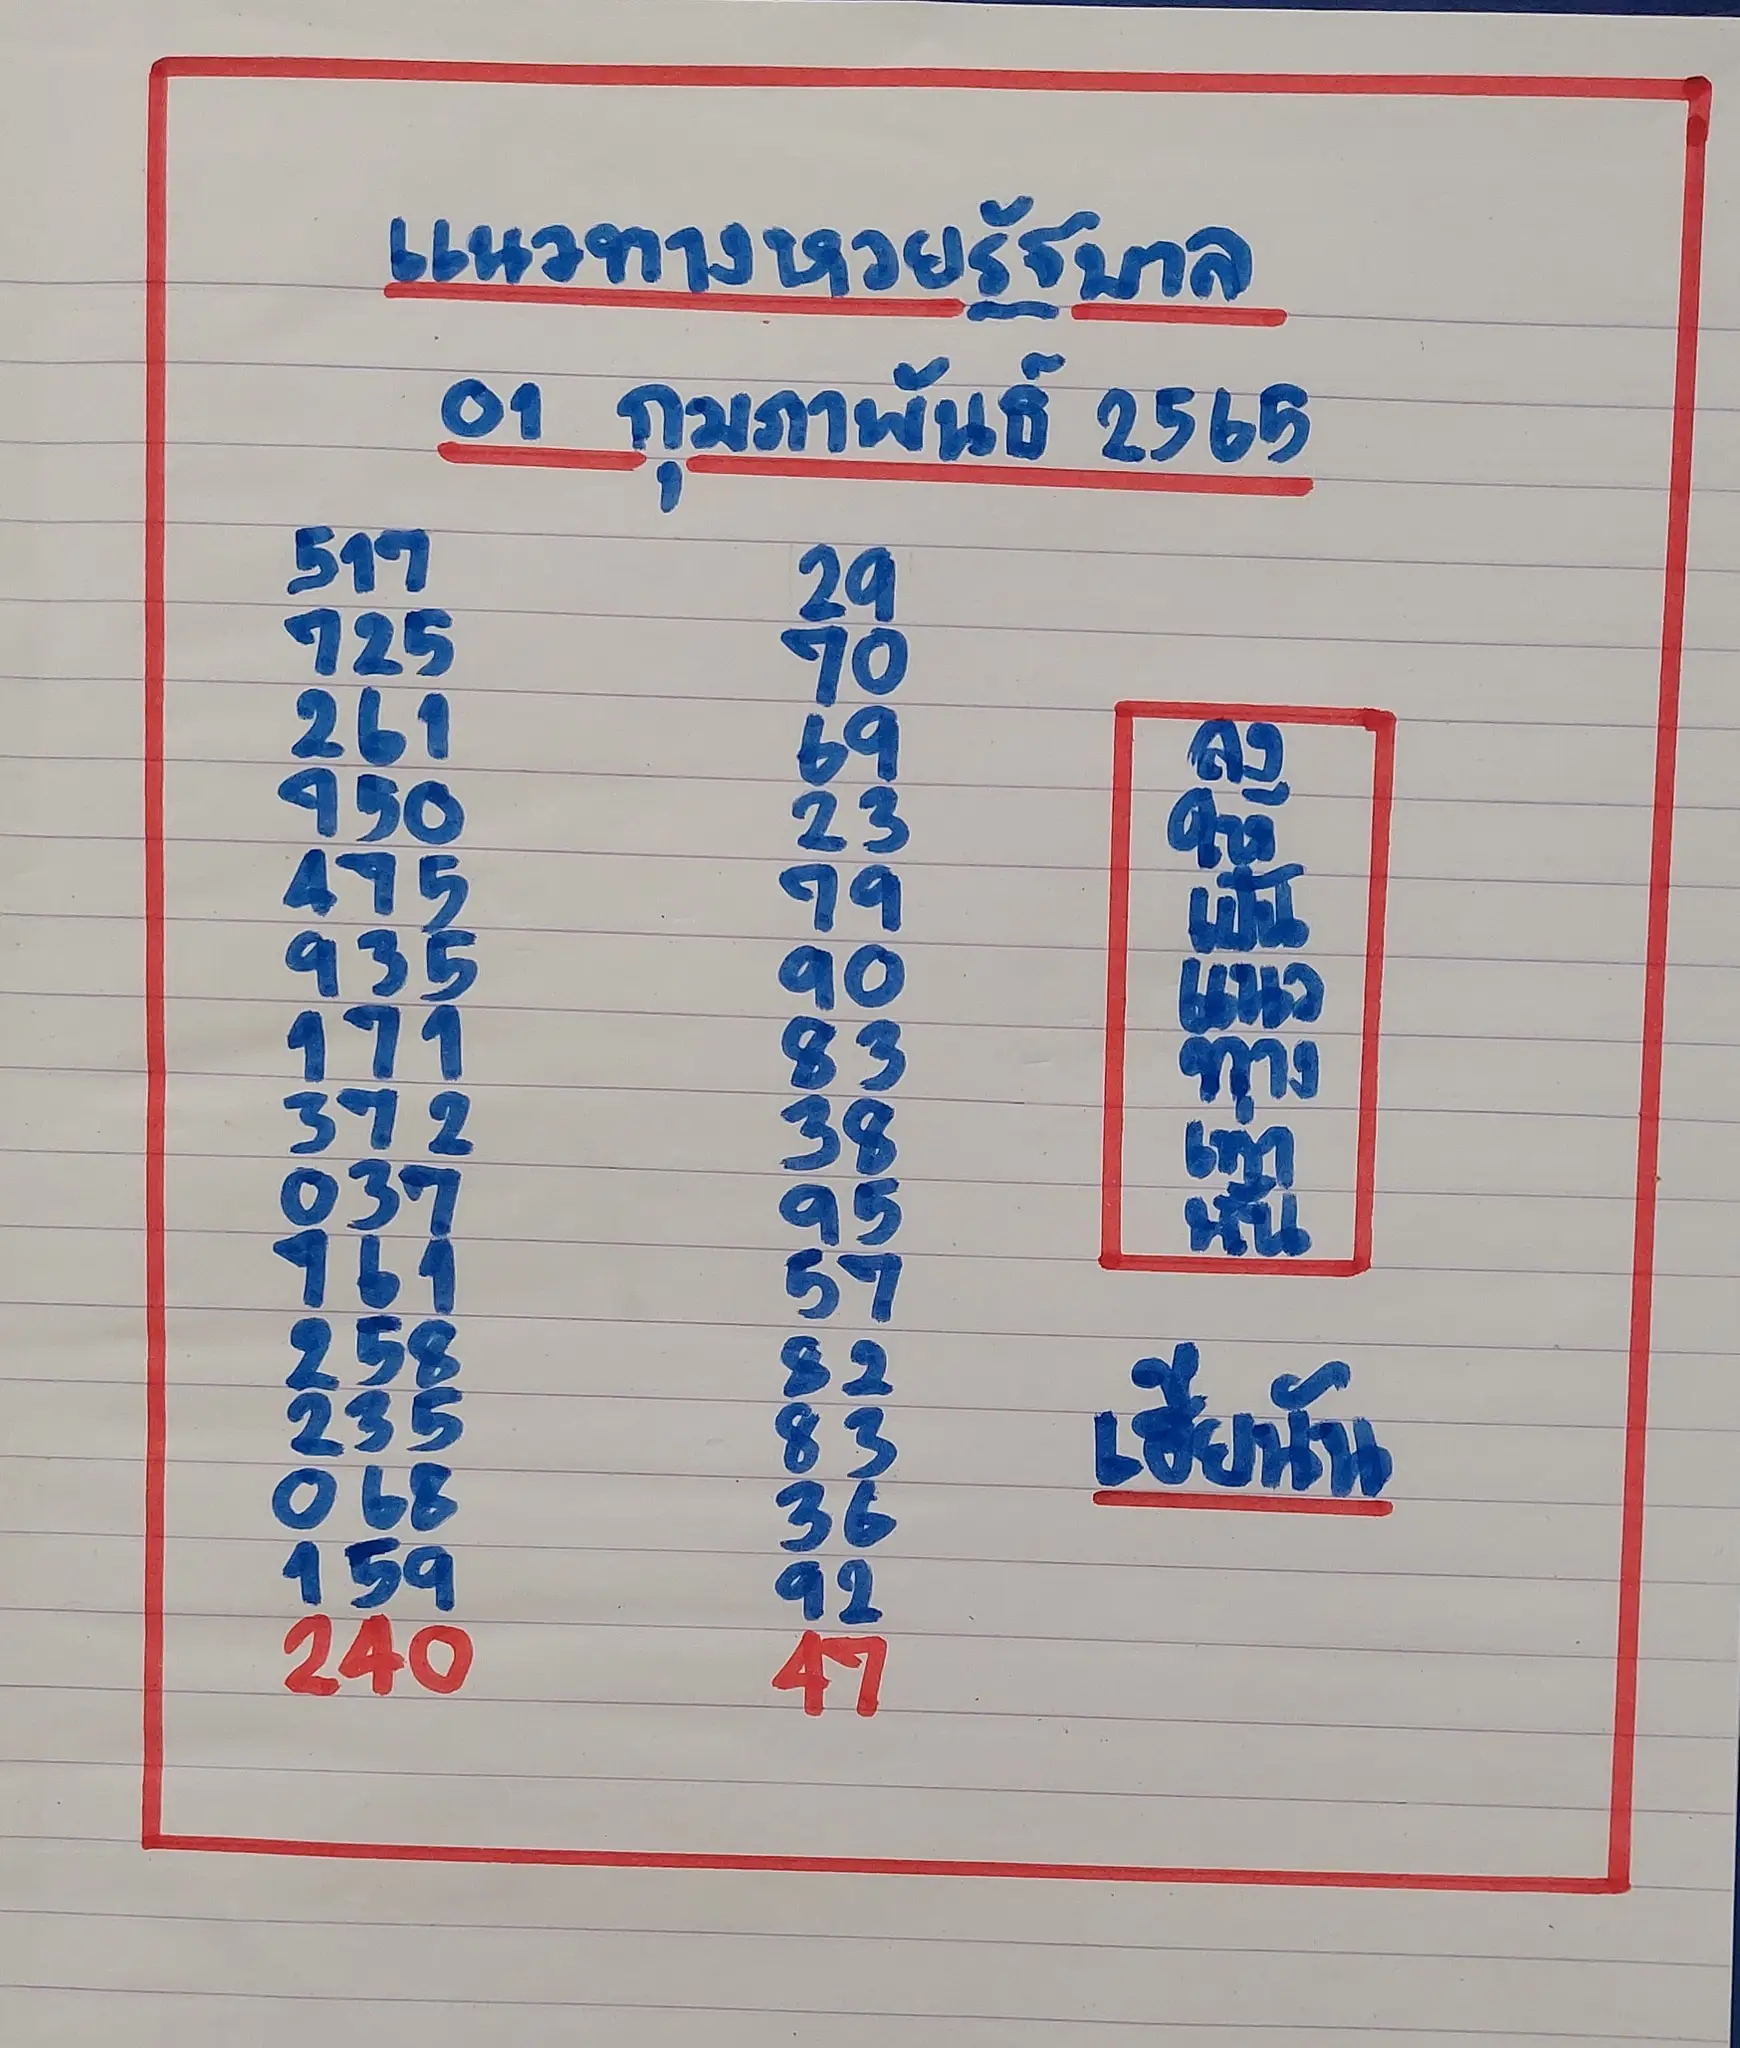 แนวทางหวยรัฐบาล
01 กุมภาพันธ์ 2565
517 29
725 70
261 69
950 23
475 79
935 90
171 83
372 38
037 95
761 57
258 82
235 83
068 36
159 92
240 47
ลง
ให้
เป็น
แนว
ทาง
เท่า
นั้น
เฮียนัน